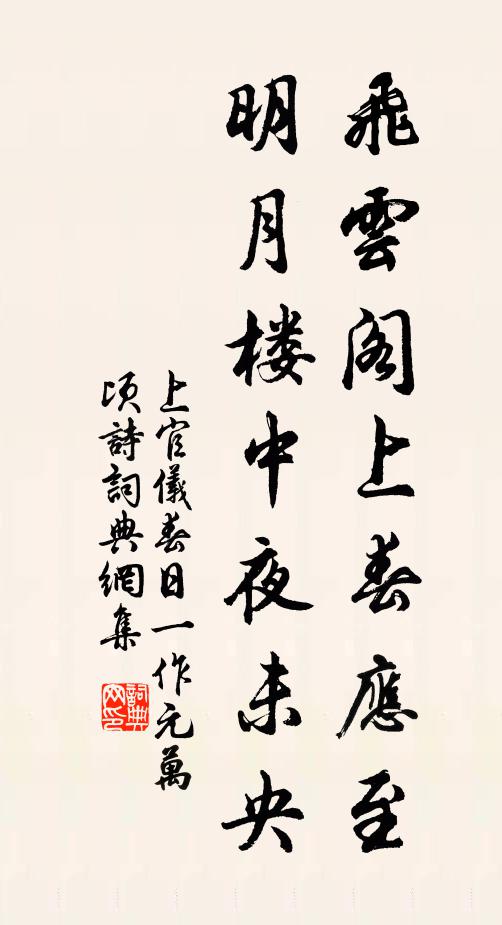 飛雲阁上春應至
明月楼中夜未央
上官儀春日一作元萬
顷詩詞典網集
詞典网印